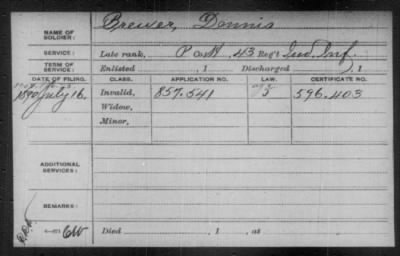 NAME OF SOLDIER: Brewer, Dennis
SERVICE: Late rank, P Co. H, 43 Reg't Ind. Inf.
TERM OF SERVICE: Enlisted , 1 Discharged , 1
DATE OF FILING. CLASS. APPLICATION NO. LAW. CERTIFICATE NO.
1890 July 16. Invalid, 857.541 596.403
Widow,
Minor,
ADDITIONAL SERVICES:
REMARKS:
Died , 1 , at